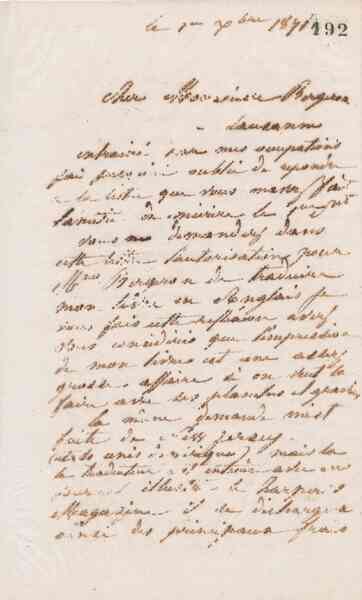 le 1er Xbre 1871
192
Cher Monsieur Bergeron
Lausanne
entrainé par mes occupations
j'ai presque oublié de repondre
a la lettre que vous m'avez fait
l'amitié de m'écrire le
vous me demandez dans
cette lettre l'autorisation pour
Mme Bergeron de traduire
mon livre en Anglais je
vous fais cette reflexion avez
vous considerez que l'impression
de mon livre est une assez
grosse affaire si on veut la
faire avec des planches et gravures
la même demande m'est
faite de New Jersey
(etats unis d'amerique) mais la
le traducteur s'entend avec un
journal illustré le Harper's
Magazine il se decharge
ainsi des principaux frais